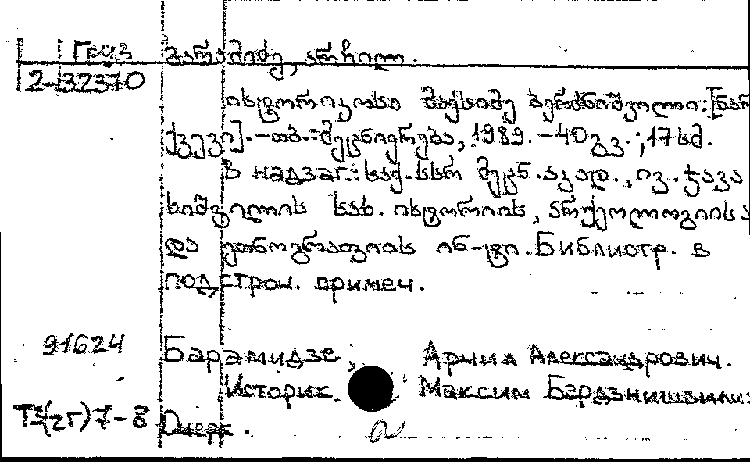 Груз ბარამიძე, არჩილ.
2-32370
ისტორიკოსი მაქსიმე ბერძნიშვილი: [ნარ
კვევი].-თბ.:მეცნიერება, 1989.-40გვ.;17სმ.
В надзаг.: საქ.სსრ მეცნ.აკად., ივ.ჯავა
ხიშვილის სახ. ისტორიის, არქეოლოგიისა
და ეთნოგრაფიის ინ-ტი. Библиогр. в
подстроч. примеч.
91624 Барамидзе, Арчил Александрович.
Историк Максим Бардзнишвили:
Т3(2Г)7-8 Очерк.